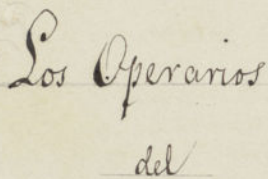 Los Operarios
del